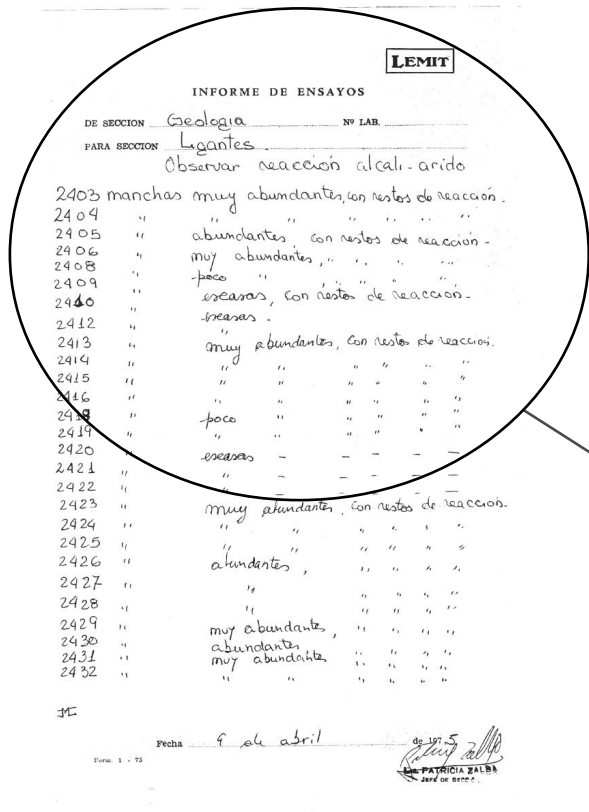 LEMIT
INFORME DE ENSAYOS
DE SECCION Geología Nº LAB.
PARA SECCION Ligantes.
Observar reacción alcali-arido
2403 manchas muy abundantes, con restos de reacción.
2404 " " " " " " "
2405 " abundantes, con restos de reacción-
2406 " muy abundantes, " " " "
2408 " poco " " " " "
2409 " escasas, con restos de reacción-
2410 " escasas.
2412 " "
2413 " muy abundantes, con restos de reacción.
2414 " " " " " " "
2415 " " " " " " "
2416 " " " " " " "
2418 " poco " " " " "
2419 " " " " " " "
2420 " escasas - - - - -
2421 " " - - - - -
2422 "
2423 " muy abundantes, con restos de reacción.
2424 " " " " " " "
2425 " " " " " " "
2426 " abundantes, " " " "
2427 " " " " " "
2428 " " " " " "
2429 " muy abundantes, " " " "
2430 " abundantes " " " "
2431 " muy abundantes " " " "
2432 " " " " " " "
Fecha 9 de abril de 1975
Form. 1 - 75
Lic. PATRICIA ZALBA
JEFE DE SECC.